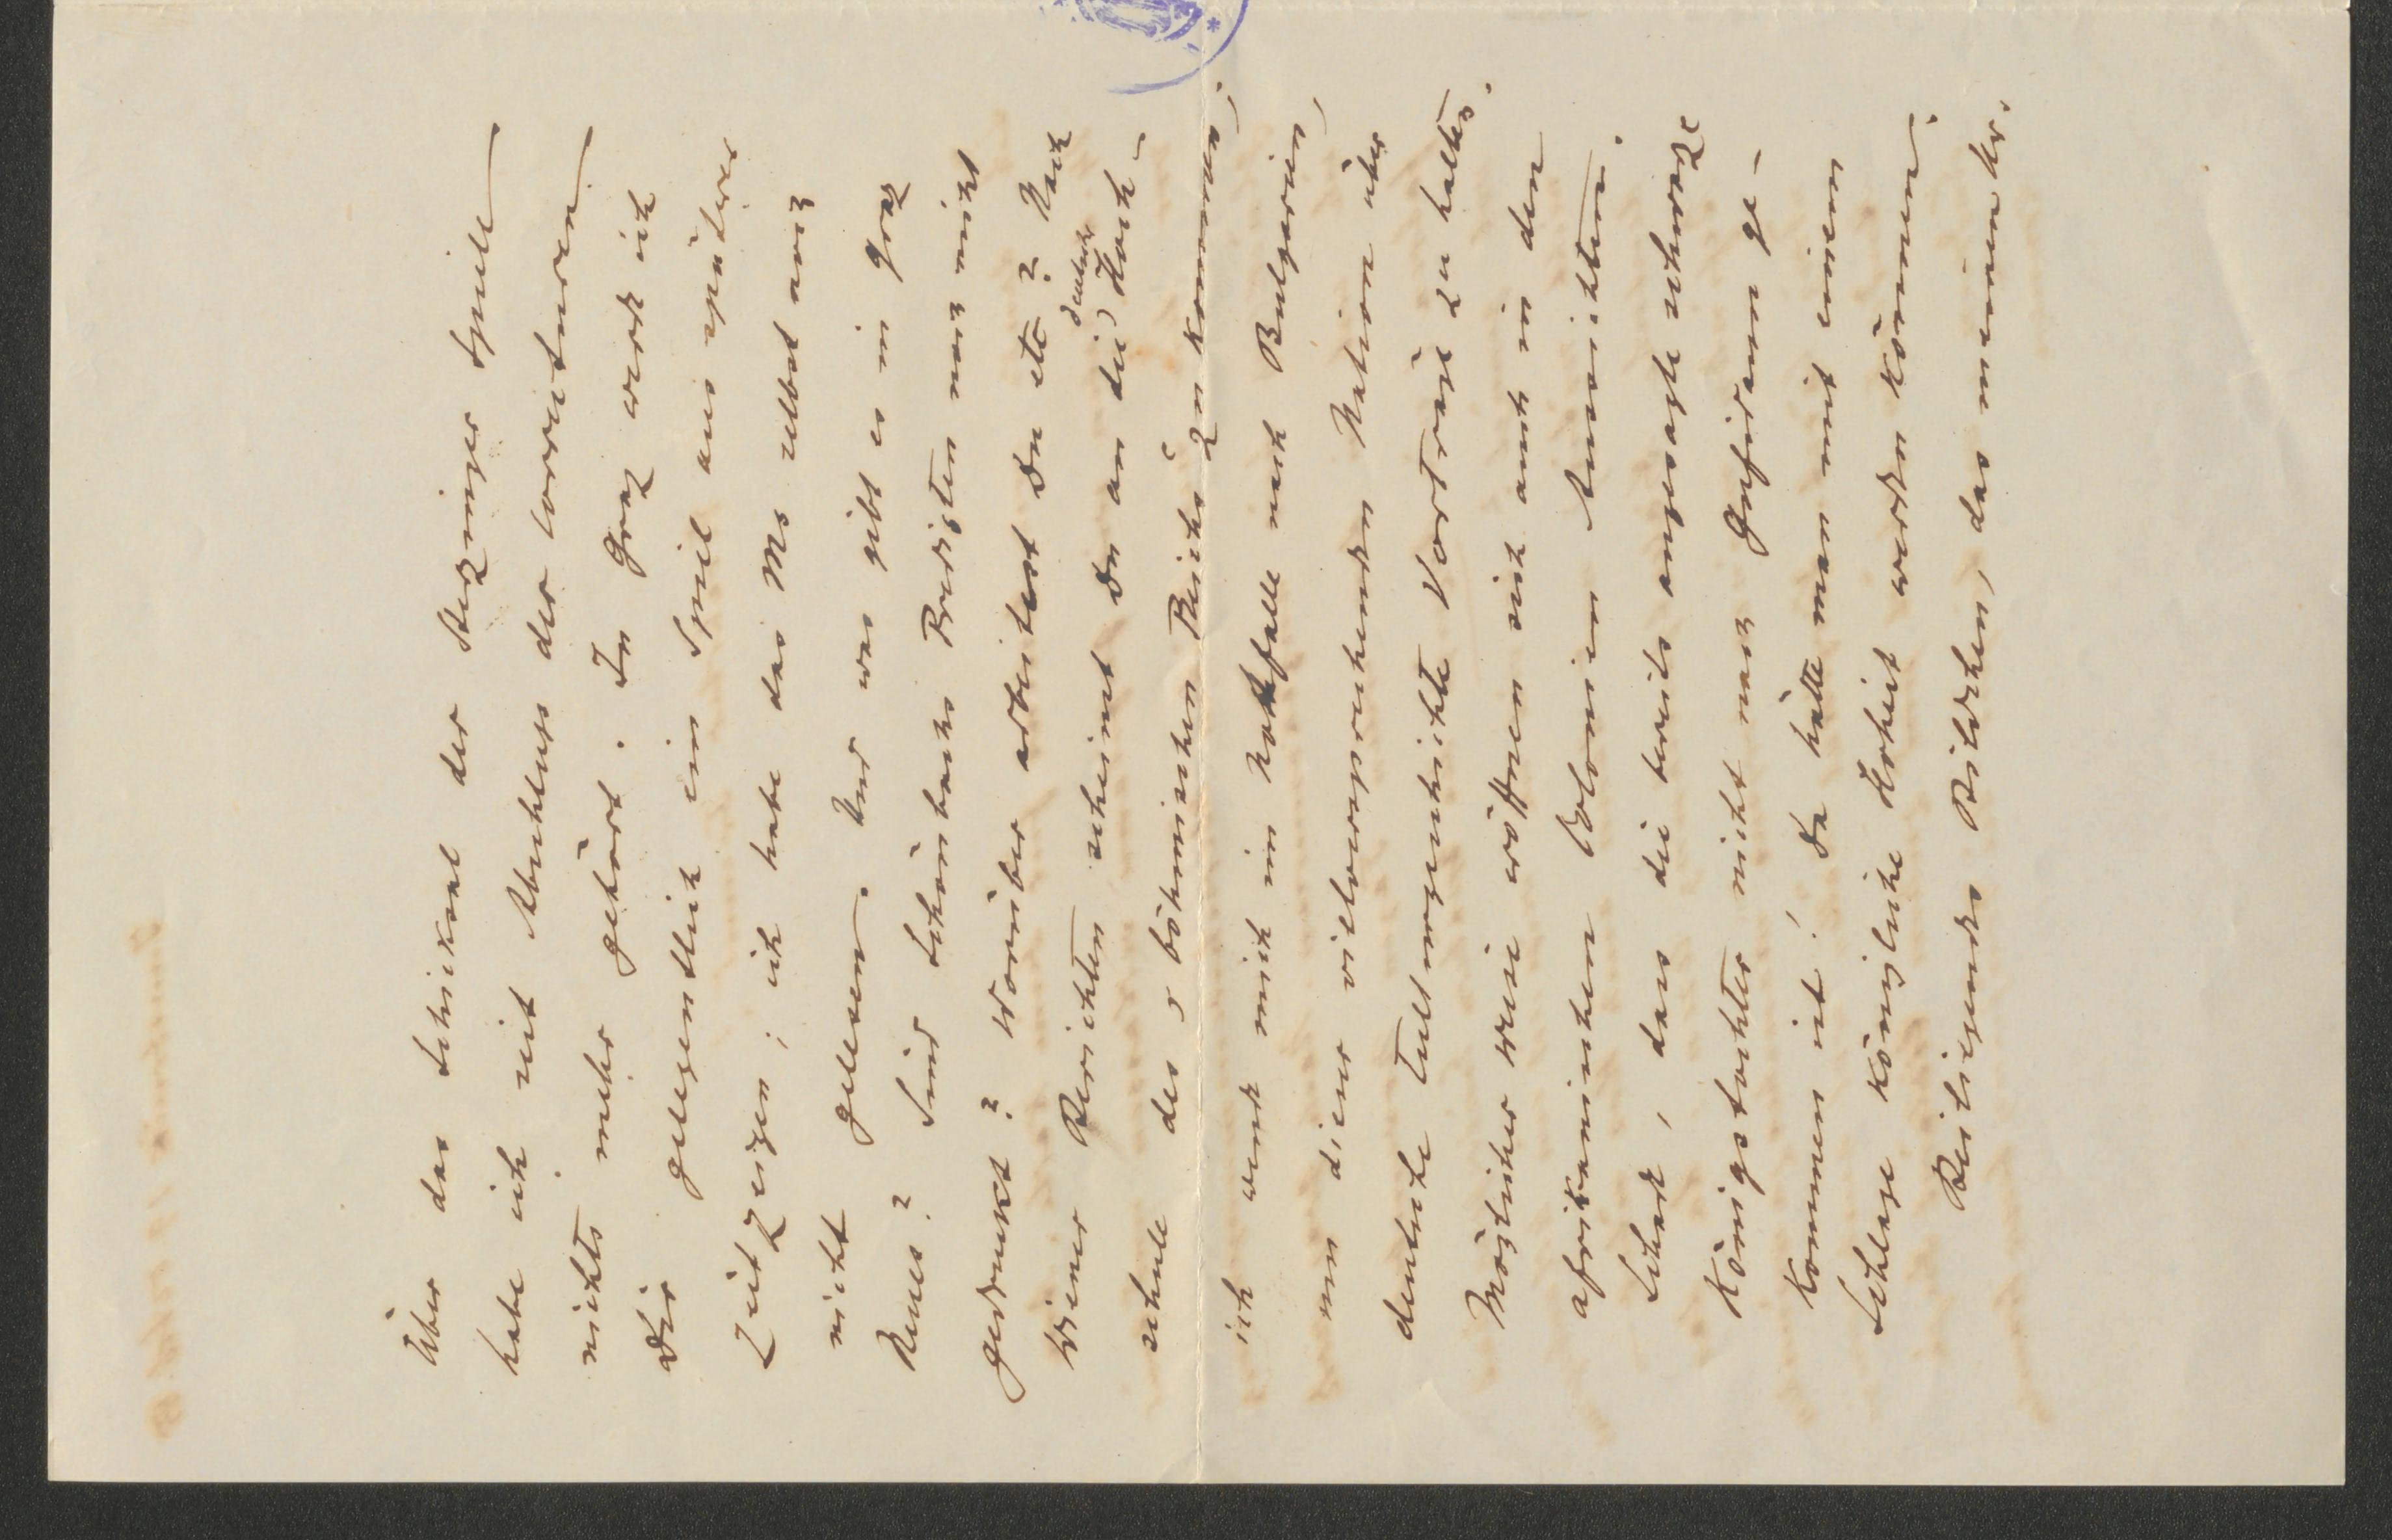 Über das Schicksal der Sterzinger Spiele
habe ich seit Abschluss der Correcturen
nichts mehr gehört. In Graz werde ich
Dir gelegentlich ein Spiel aus späterer
Zeit zeigen; ich habe das Ms selbst noch
nicht gelesen. Und was gibt es in Graz
Neues? Sind Schönbachs Predigten noch nicht
gedruckt? Worüber arbeitest Du etc? Nach
Wiener Berichten scheinst Du an die deutsche Hoch-
schule des böhmischen Reichs zu kommen;
ich werde mich im Notfalle nach Bulgarien,
um dieser vielversprechenden Nation über
deutsche Culturgeschichte Vorträge zu halten.
Möglicher Weise eröffnen sich auch in den
afrikanischen Colonien Aussichten.
Schade, dass die bereits angesagte schwarze
Königstochter nicht nach Gufidaun ge-
kommen ist! Da hätte man mit einem
Schlage königliche Hoheit werden können.
Beiliegendes Bildchen, das meine